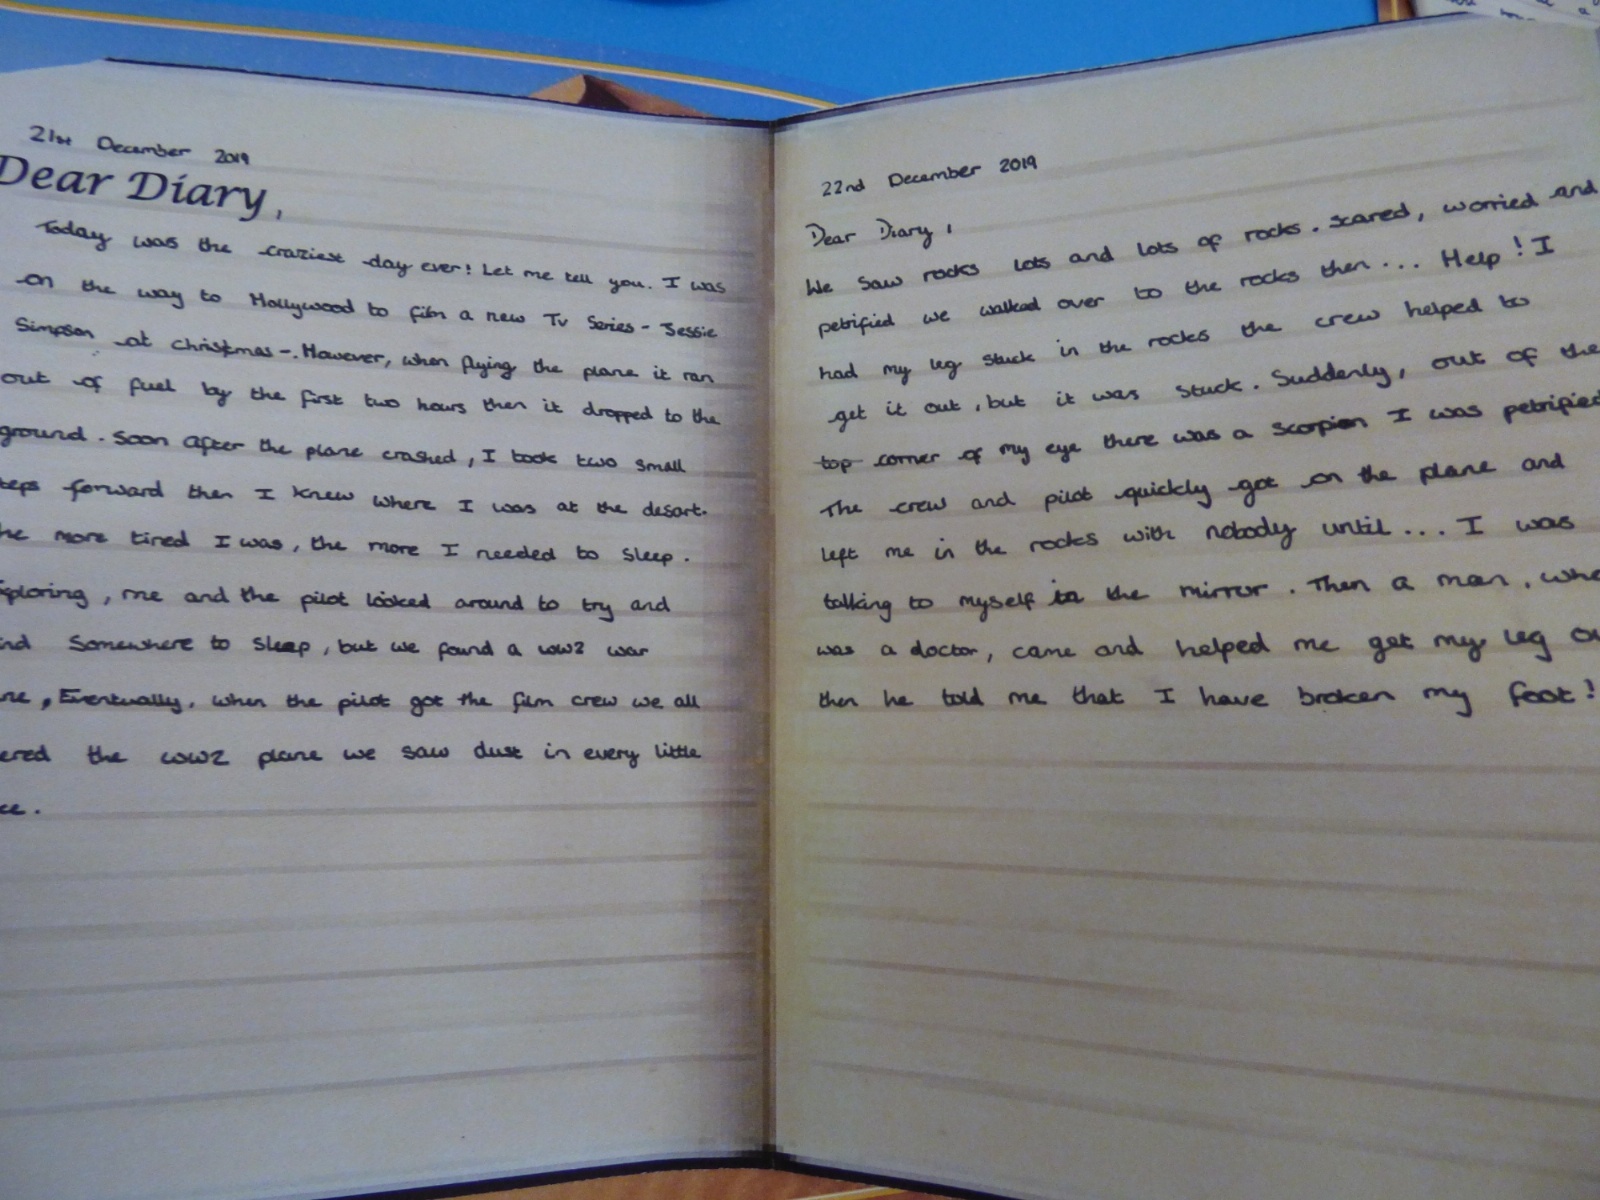 21st December 2019
Dear Diary,
Today was the craziest day ever! Let me tell you. I was
on the way to Hollywood to film a new Tv Series - Jessie
Simpson at christmas -. However, when flying the plane it ran
out of fuel by the first two hours then it dropped to the
ground. Soon after the plane crashed, I took two small
teps forward then I knew where I was at the desart.
he more tired I was, the more I needed to sleep.
xploring, me and the pilot looked around to try and
nd somewhere to sleep, but we found a ww2 war
ne, Eventually, when the pilot got the film crew we all
ered the ww2 plane we saw dust in every little
ce.
22nd December 2019
Dear Diary,
We saw rocks lots and lots of rocks. Scared, worried and
petrified we walked over to the rocks then... Help! I
had my leg stuck in the rocks the crew helped to
get it out, but it was stuck. Suddenly, out of the
top corner of my eye there was a scorpion I was petrified
The crew and pilot quickly got on the plane and
left me in the rocks with nobody until... I was
talking to myself in the mirror. Then a man, who
was a doctor, came and helped me get my leg ou
then he told me that I have broken my foot!